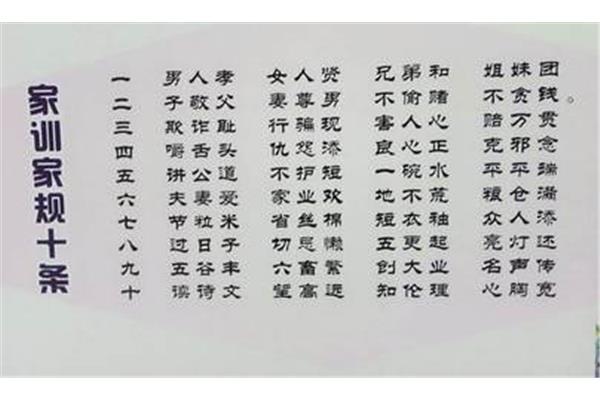 家训家规十条
一 男人孝 女人贤 兄弟和 姐妹团
二 子敬父 妻尊男 不偷赌 不贪钱。
三 欺诈耻 行骗现 害人心 赔万贯
四 嚼舌头 仇怨添 良心正 克邪念
五 讲公道 不护短 一碗水 平平端
六 夫妻爱 家业欢 地不荒 粮仓满
七 节粒米 省丝棉 短衣袖 众人添
八 过日子 切忌懒 五更起 亮灯还
九 五谷丰 六畜繁 创大业 名声传
十 读诗文 望高远 知伦理 心胸宽